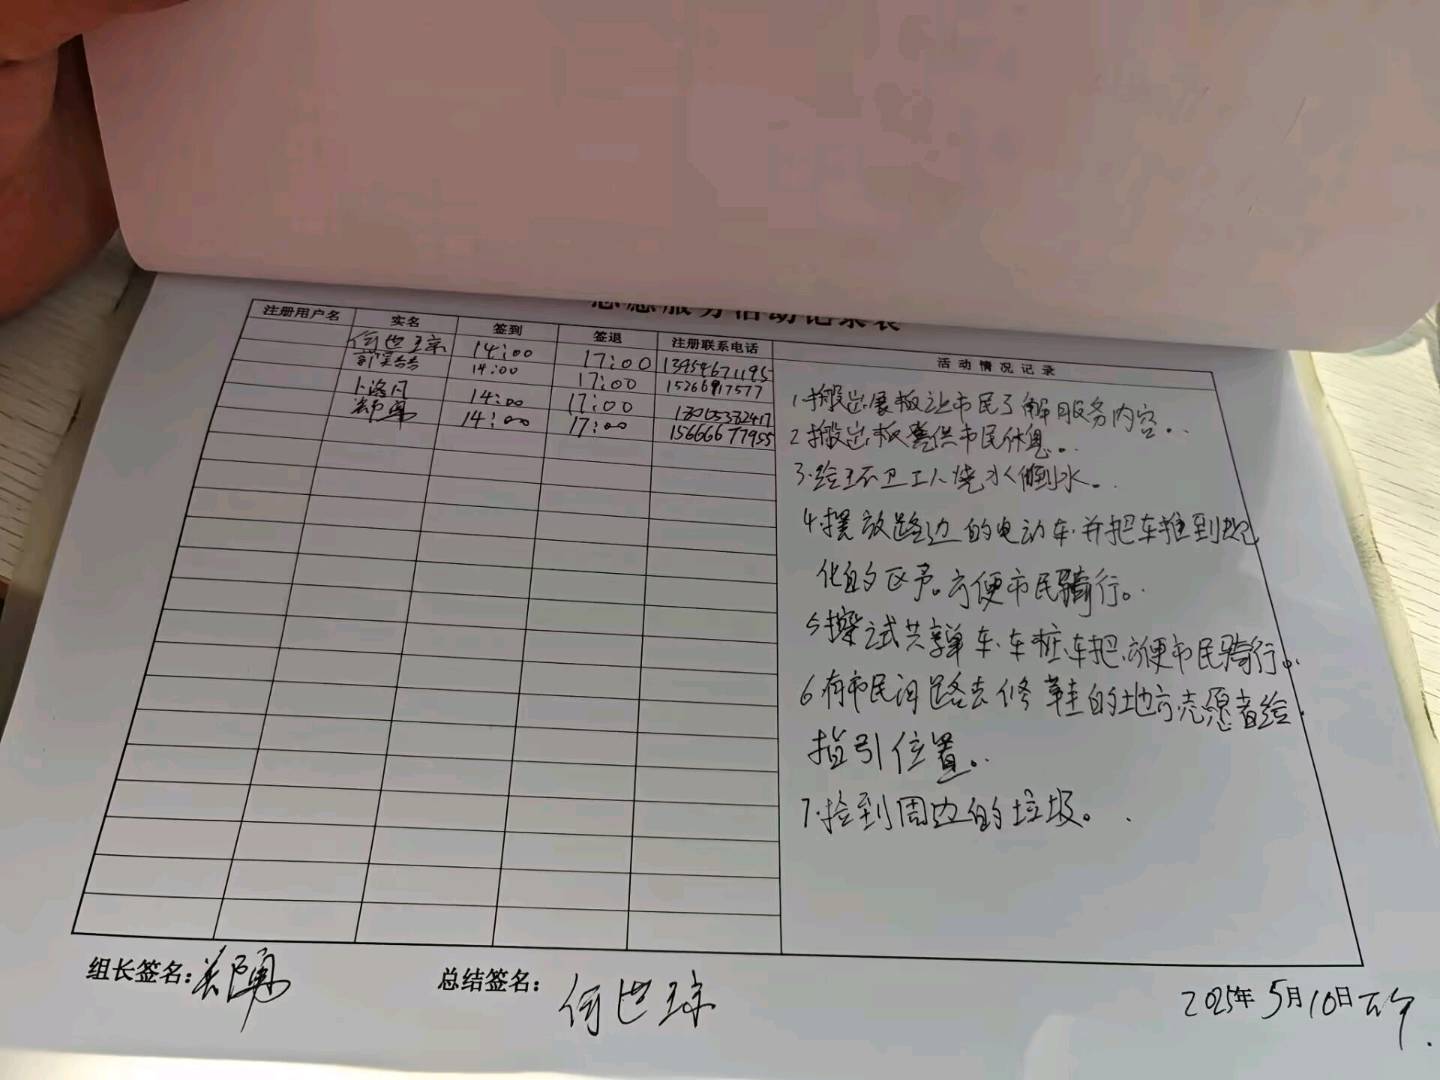 志愿服务活动记录表
注册用户名 实名 签到 签退 注册联系电话 活动情况记录
何世琼 14:00 17:00
14:00 17:00
14:00 17:00
14:00 17:00 15666677955
1.搬出展板让市民了解服务内容。
2.搬出板凳供市民休息。
3.给环卫工人烧水倒水。
4.摆放路边的电动车.并把车推到规
化的区予。方便市民骑行。
5.擦试共享单车.车桩、车把.方便市民骑行。
6.有市民问路去修鞋的地方志愿者给
指引位置。
7.捡到周边的垃圾。
组长签名: 总结签名: 何世琼
2025年5月10日下午